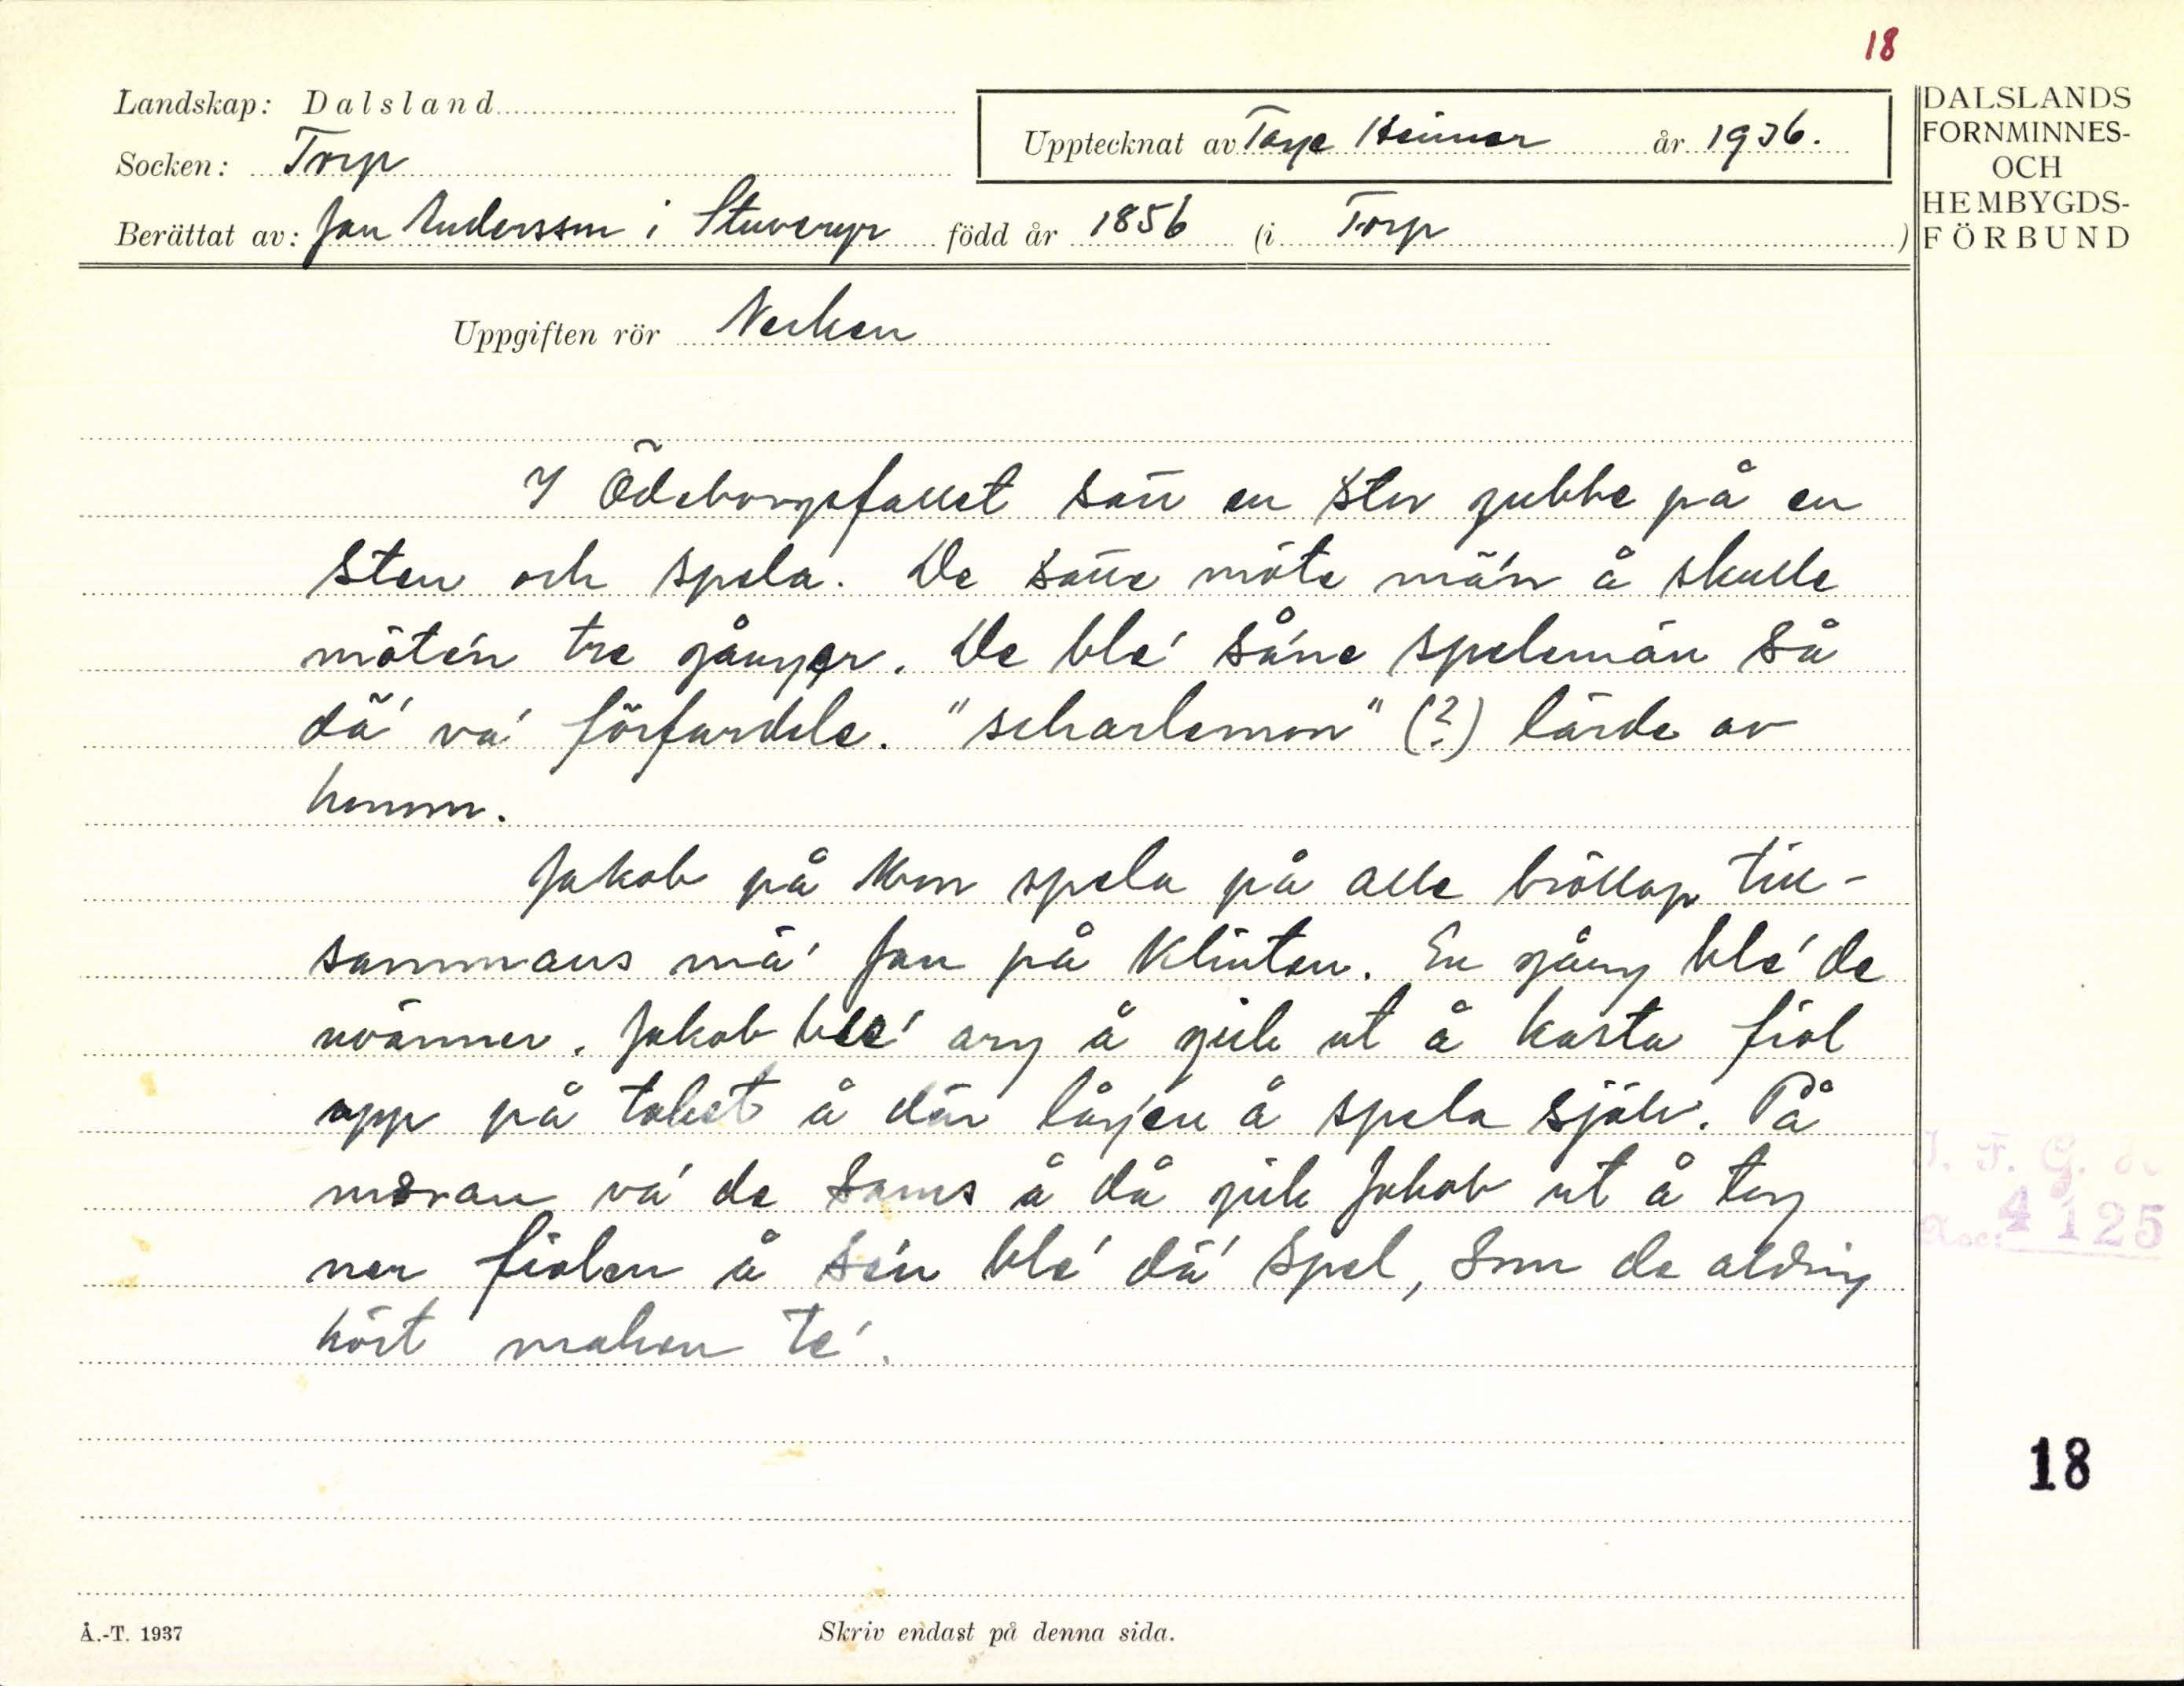 18
Landskap: Dalsland
Upptecknat av Tage Heimer år 1936.
Socken: Torp
Berättat av: Jan Andersson i Stuveryr född år 1856 (i Torp)
DALSLANDS
FORNMINNES-
OCH
HEMBYGDS-
FÖRBUND
Uppgiften rör Necken
I Ödeborgsfallet satt en stor gubbe på en
sten och spela. De satte möte mä'n å skulle
möte'n tre gånger. De ble' såne spelemän så
dä' va' förfardele. "scharlemon" (?) lärde av
honom.
Jakob på Mon spela på alle bröllop till-
sammans mä' Jan på Klinten. En gång ble' de
uvänner. Jakob ble' arg å gick ut å kasta fiol
opp på taket å där låg'en å spela själv. På
moran va' de sams å då gick Jakob ut å tog
ner fiolen å se'n ble' dä' spel, som de aldrig
hört maken te'.
I. F. G. s
Acc. 4125
18
Å.-T. 1937
Skriv endast på denna sida.